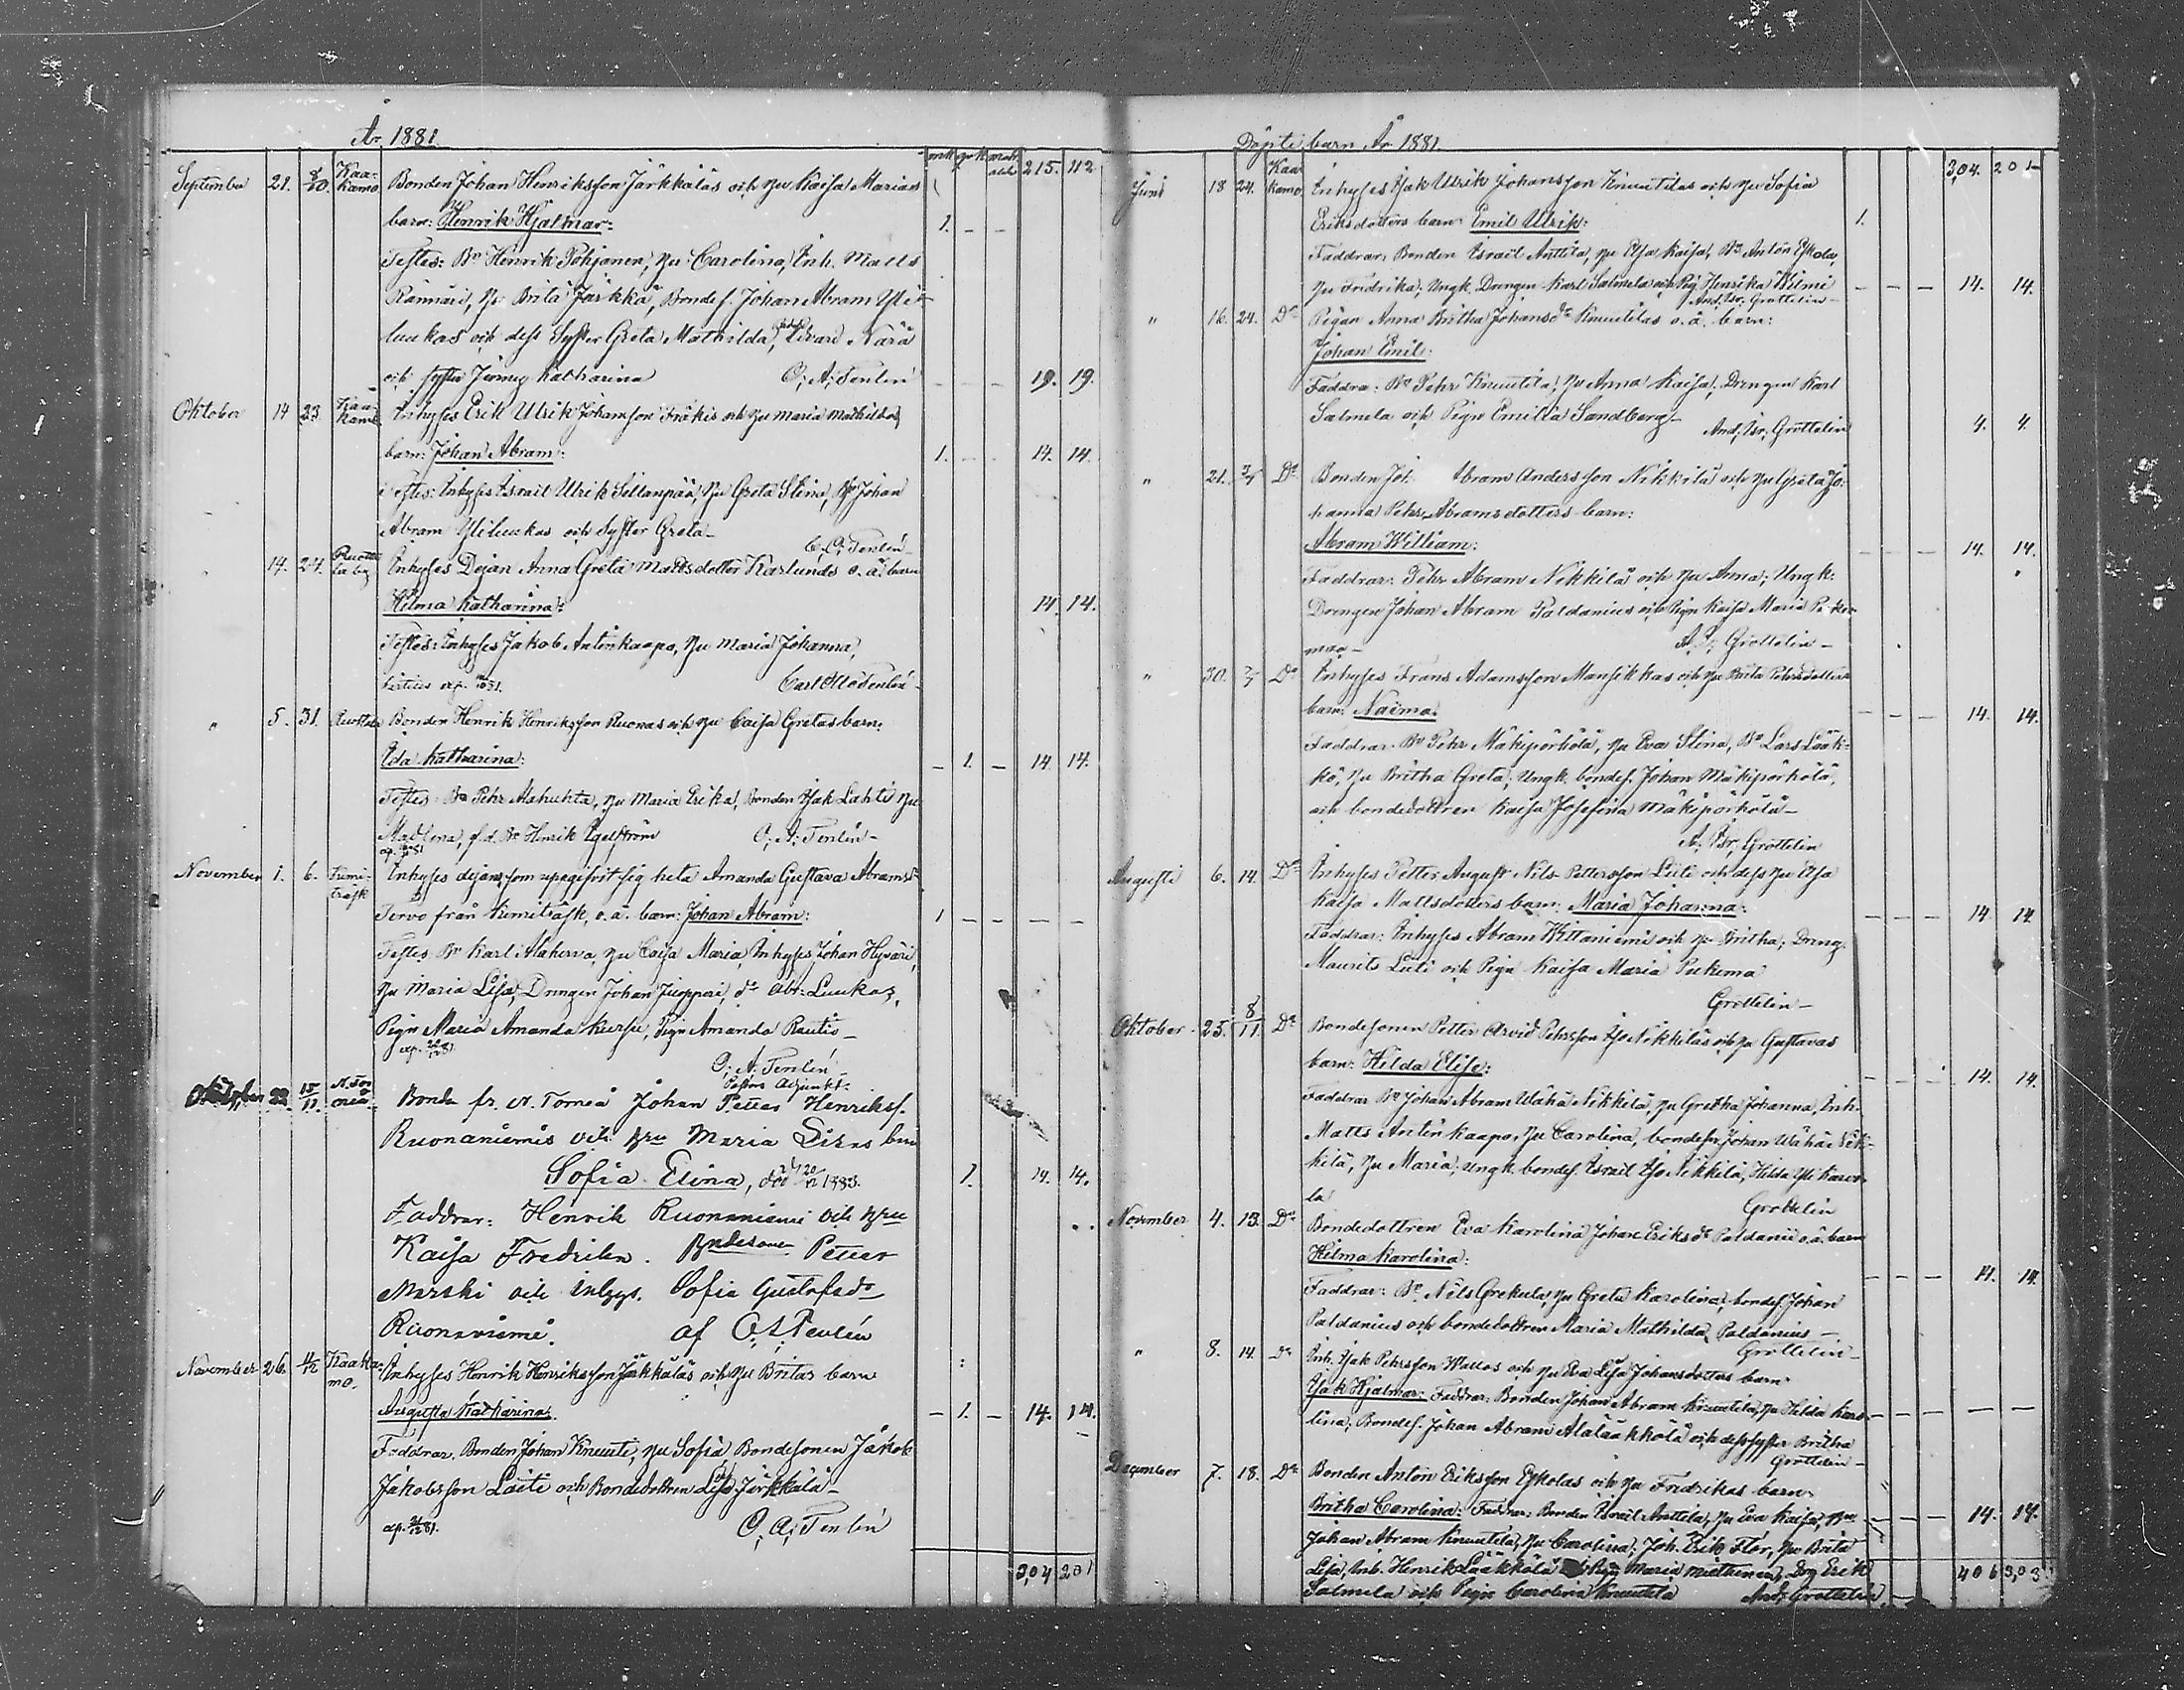 År 1881.
215. 112
September 21. 8/10. Kaa-
kamo Bonden Johan Henriksson Järkkäläs och hu Kaisa Marias
barn: Henrik Hjalmar: 1. – –
Testes: Bn Henrik Pohjanen, hu Carolina, Inh. Matts
hu Brita Järkkä, Bondes. Johan Abram Yli-
luukas och dess Syster Greta Mathilda, Edvard Närä
och syster Katharina O; A; Tenlén 19. 19.
Oktober 14 23 Kaa-
kamo Inhyses Erik Ulrik Johansson och hu Maria Mathildas
barn: Johan Abram: 1. 14. 14.
Testes: Inhyses Israil Ulrik Sellanpää, hu Greta Stina, Johan
Abram Yliluukas och Syster Greta –
C. O; Tenlén –
14. 24. Inhyses Dejan Anna Greta Mattsdotter Karlunds o. ä. barn
Hilma Katharina: 14. 14.
Testes: Inhyses Jakob Antinkaapo, hu Maria Johanna,
Carl Otto Tenlén
" 5. 31. Bonden Henrik Henriksson Ruonas och hu Caisa Gretas barn:
Ida Katharina: – 1. – 14 14.
Testes: Bn Pehr Alahuhta, hu Maria Erika, Bonden Isak Lahti hu
Madlena, f.d. Bn Henrik O; A; Tenlén –
November 1. 6. Inhyses dejan, som uppgifvit sig heta Amanda Gustava Abramsdr
Tervo från Kemiträsk, o. ä. barn: Johan Abram: 1 – – – –
Testes Bn Karl Alaherva, hu Caisa Maria, Inhyses Johan Hyväri,
hu Maria Lisa, Drengen Johan Abr: Luukas,
Pign Maria Amanda Kursu, Pign Amanda Rautio –
O; A; Tenlén
Pastors Adjunkt:
22. 15/11. N. Tor-
neå. Bonde fr. N. Torneå Johan Petter Henrikss.
Ruonaniemis och hru Maria barn
Sofia Elina, död 20/12 1883. 1. 14. 14.
Faddrar: Henrik Ruonaniemi och hru
Kaisa Fredrika. Bondesonen Petter
Marski och inhys. Sofia Gustafsdr
Ruonaniemi. af O. A. Tenlén
November 26. 11/12 Kaaka-
mo. Inhyses Henrik Henriksson Järkkäläs och hu Britas barn
Augusta Katharina. – 1. – 14. 14.
Faddrar. Bonden Johan Knuuti, hu Sofia, Bondesonen Jakob
Jakobsson Laiti och Bondedottren Lisa Järkkälä –
O; A; Tenlén
3,04 201
Döpte barn År 1881.
3,04. 201
Juni 18 24. Kaa-
kamo Inhyses Isak Ulrik Johansson Knuutilas och hu Sofia
Eriksdotters barn Emil Ulrik: 1.
Faddrar, Bonden Israil Anttila, hu Elsa Kaisa, Bn Anton Eskola,
hu Fredrika; Ungk. Drengen Karl Salmela och Pig. Henrika Wilmi – – – 14. 14.
And; Isr; Grottelin –
" 16. 24. Do Pigan Anna Britha Johansdr Knuutilas o. ä. barn:
Johan Emil:
Faddra: Bn Pehr Knuutila, hu Anna Kaisa, Drengen Karl
Salmela och Pign Emilia Sandberg –
And; Isr; Grottelin 4. 4.
" 21. Do Bonden Joh. Abram Andersson Nikkilä och hu Greta Jo-
hanna Pehr Abramsdotters barn:
Abram William: – – – 14. 14.
Faddrar: Pehr Abram Nikkilä och hu Anna; Ungk:
Drengen Johan Abram Paldanius och Pign Kaisa Maria
A; I; Grottelin –
" 30. Do Inhyses Frans Adamsson Mansikkas och hu Brita Petersdotters
barn: Naima: – – – 14. 14.
Faddrar. Bn Pehr Mäkipörhölä, hu Eva Stina, Bn Lars Lääk-
kö, hu Britha Greta, Ungk. bondes. Johan Mäkipörhölä,
och bondedottren Kaisa Josefina Mäkipörhölä –
A; Isr; Grottelin
Augusti 6. 14. Do Inhyses Petter August Nils Pettersson Luti och dess hu Elsa
Kaisa Mattsdotters barn: Maria Johanna: – – – 14. 14
Faddrar: Inhyses Abram Wittaniemi och hu Britha; Dreng.
Maurits Luti och Pign Kaisa Maria
Grottelin –
Oktober 25. 8/11. Do Bondesonen Petter Arvid Pehrsson Iso Nikkiläs och hu Gustavas
barn: Hilda Elise: – – – 14. 14.
Faddrar Bn Johan Abram Wähä Nikkilä, hu Gretha Johanna, Inh.
Matts Antinkaapo, hu Carolina, bondeson Johan Wähä Nik-
kilä, hu Maria, ungk. bondes. Israil Iso Nikkilä, Hilda Yli
la Grottelin
November 4. 13. Do Bondedottren Eva Karolina Johan Eriksdr Paldanii o. ä. barn
Hilma Karolina: – – – 14. 14.
Faddrar: Bn Nils Grekula, hu Greta Karolina, bondes. Johan
Paldanius och bondedottren Maria Mathilda Paldanius –
Grottelin –
" 8. 14. Do Inh. Isak Pehrsson och hu Eva Lisa Johansdotters barn
Isak Hjalmar: Faddrar: Bonden Johan Abram Knuutila, hu Hilda Karo- – – – – –
lina; Bondes. Johan Abram Alalääkkölä och dess syster Britha
Grottelin –
December 7. 18. Do Bonden Anton Eriksson Eskolas och hu Fredrikas barn
Britha Carolina: Faddrar: Bonden Israil Anttila, hu Eva Kaisa, Bn – – – 14. 14.
Johan Abram Knuutila, hu Carolina; Joh. Erik Flor, hu Brita
Lisa, Inh. Henrik Lääkkölä Pign Maria Drg Erik 406 3,03
Salmela och Pign Carolina Knuutila And; Grottelin